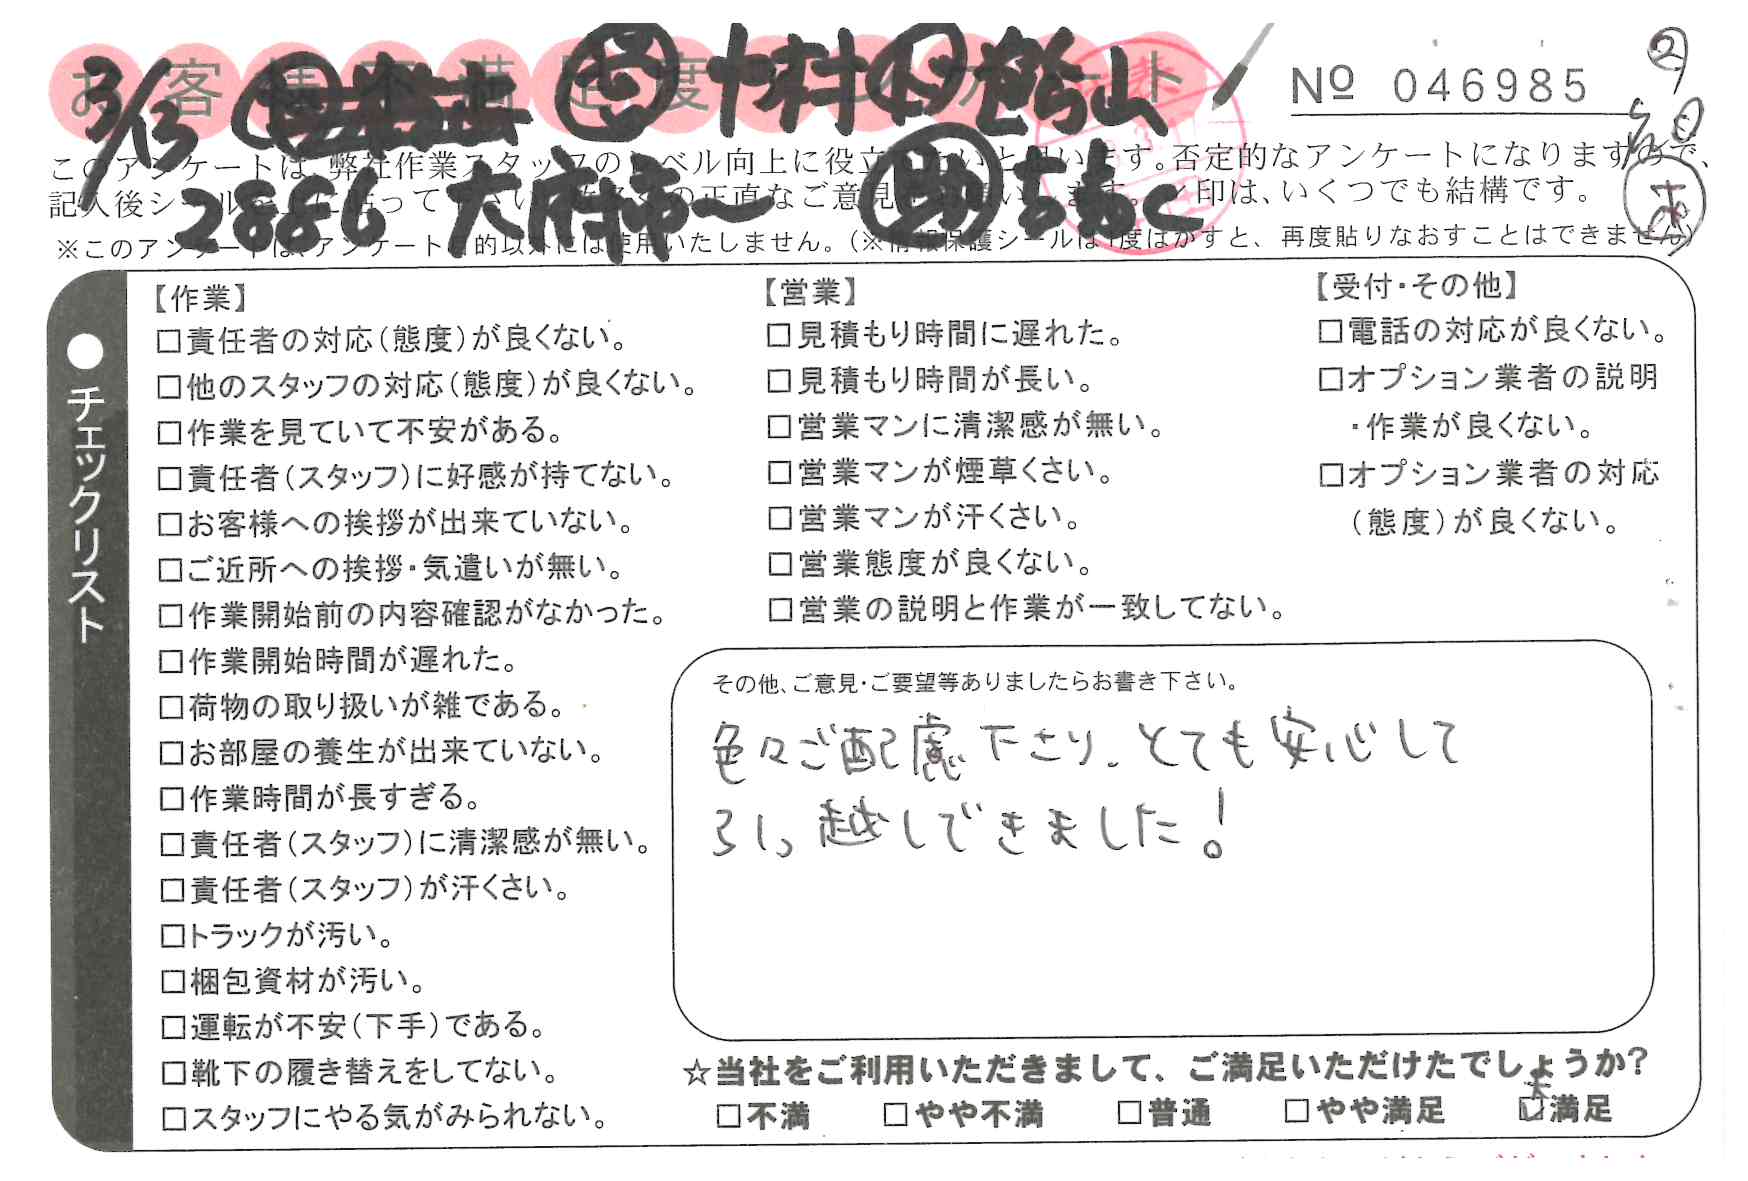 お客様不満足度アンケート
№ 046985
3/13
2886 大府市〜
このアンケートは、弊社作業スタッフのレベル向上に役立てたいと思います。否定的なアンケートになりますので、
※このアンケートは、アンケート目的以外には使用いたしません。(※情報保護シールは1度はがすと、再度貼りなおすことはできません)
●チェックリスト
【作業】
□責任者の対応(態度)が良くない。
□他のスタッフの対応(態度)が良くない。
□作業を見ていて不安がある。
□責任者(スタッフ)に好感が持てない。
□お客様への挨拶が出来ていない。
□ご近所への挨拶・気遣いが無い。
□作業開始前の内容確認がなかった。
□作業開始時間が遅れた。
□荷物の取り扱いが雑である。
□お部屋の養生が出来ていない。
□作業時間が長すぎる。
□責任者(スタッフ)に清潔感が無い。
□責任者(スタッフ)が汗くさい。
□トラックが汚い。
□梱包資材が汚い。
□運転が不安(下手)である。
□靴下の履き替えをしてない。
□スタッフにやる気がみられない。
【営業】
□見積もり時間に遅れた。
□見積もり時間が長い。
□営業マンに清潔感が無い。
□営業マンが煙草くさい。
□営業マンが汗くさい。
□営業態度が良くない。
□営業の説明と作業が一致してない。
【受付・その他】
□電話の対応が良くない。
□オプション業者の説明
・作業が良くない。
□オプション業者の対応
(態度)が良くない。
その他、ご意見・ご要望等ありましたらお書き下さい。
色々ご配慮下さり、とても安心して
引っ越しできました!
☆当社をご利用いただきまして、ご満足いただけたでしょうか?
□不満 □やや不満 □普通 □やや満足 ☑満足